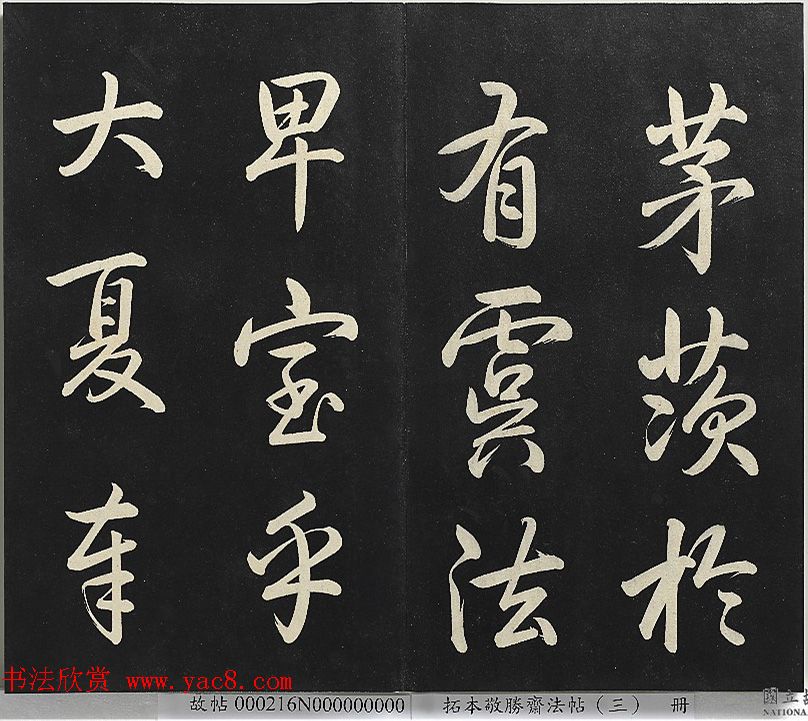 茅茨於
有虞法
卑室乎
大夏
书法欣赏 www.yac8.com
故帖 000216N000000000 拓本敬勝齋法帖（三） 册
國立
NATIONA